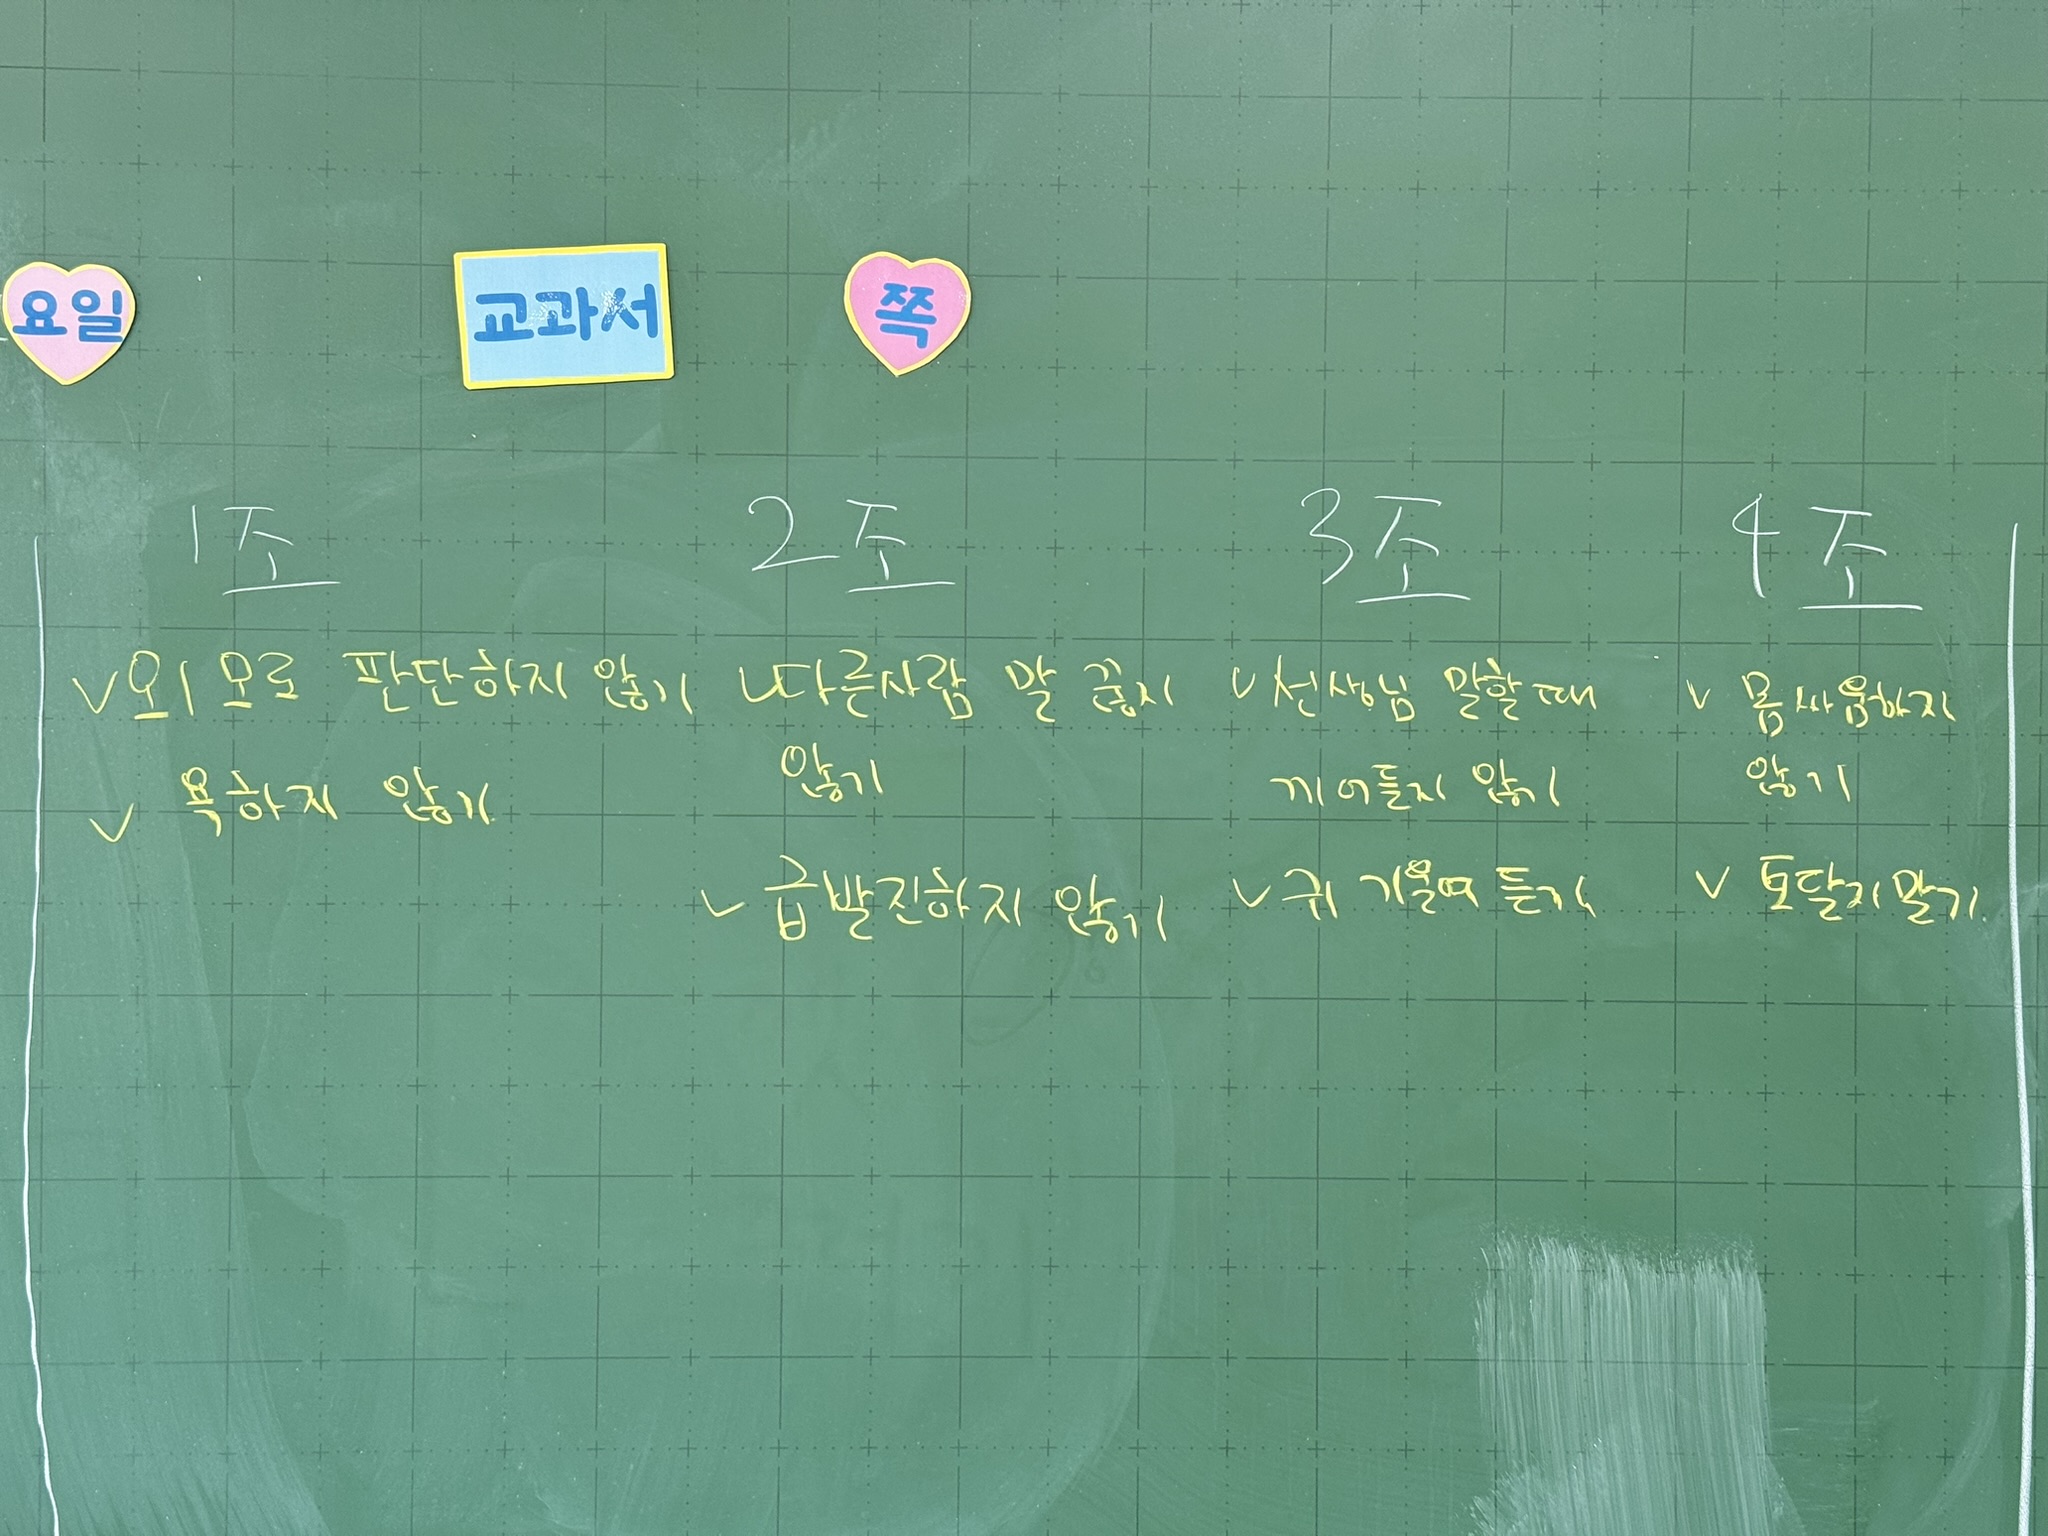 요일 교과서 쪽
1조
외모로 판단하지 않기
욕하지 않기
2조
다른사람 말 끊지
않기
급발진하지 않기
3조
선생님 말할 때
끼어들지 않기
귀 기울여 듣기
4조
몸싸움하지
않기
토달지 말기